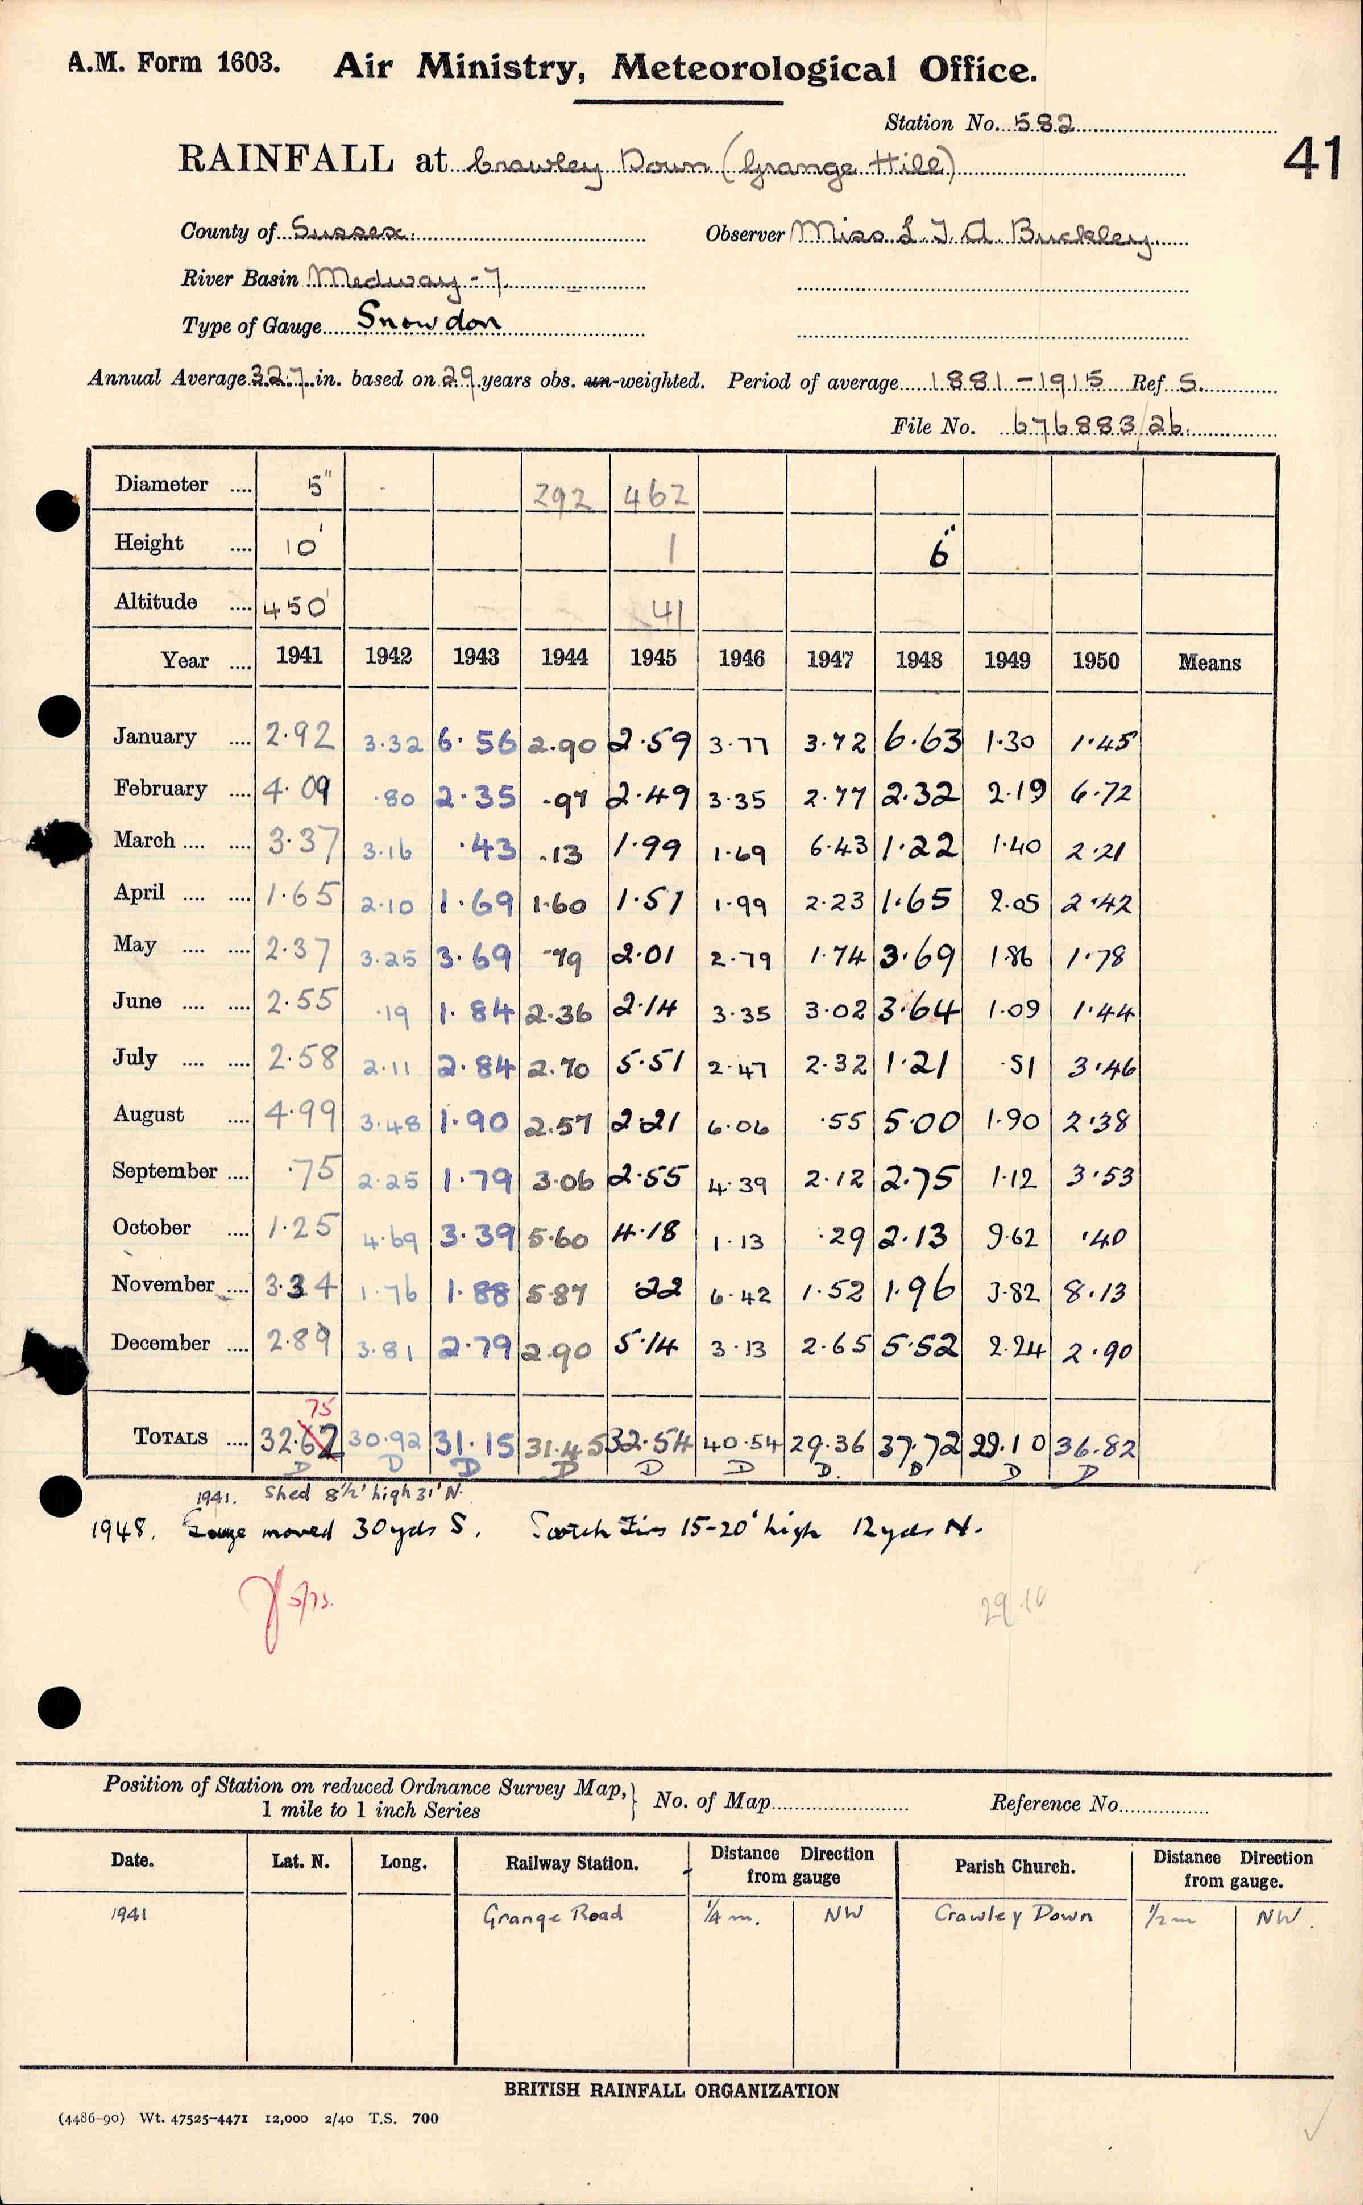 A.M. Form 1603. Air Ministry, Meteorological Office.
Station No. 582
41
RAINFALL at Crawley Down (Grange Hill)
County of Sussex. Observer Miss L I A Buckley
River Basin Medway - 7.
Type of Gauge Snowdon
Annual Average 32.7 in. based on 29 years obs. un-weighted. Period of average 1881-1915 Ref S.
File No. 676883/26.
Diameter .... 5" 292 462
Height .... 10' 1 6"
Altitude .... 450' 41
Year .... 1941 1942 1943 1944 1945 1946 1947 1948 1949 1950 Means
January .... 2.92 3.32 6.56 2.90 2.59 3.77 3.72 6.63 1.30 1.45
February .... 4.09 .80 2.35 .97 2.49 3.35 2.77 2.32 2.19 6.72
March .... .... 3.37 3.16 .43 .13 1.99 1.69 6.43 1.22 1.40 2.21
April .... .... 1.65 2.10 1.69 1.60 1.51 1.99 2.23 1.65 2.05 2.42
May .... .... 2.37 3.25 3.69 .79 2.01 2.79 1.74 3.69 1.86 1.78
June .... .... 2.55 .19 1.84 2.36 2.14 3.35 3.02 3.64 1.09 1.44
July .... .... 2.58 2.11 2.84 2.70 5.51 2.47 2.32 1.21 .51 3.46
August .... 4.99 3.48 1.90 2.57 2.21 6.06 .55 5.00 1.90 2.38
September .... .75 2.25 1.79 3.06 2.55 4.39 2.12 2.75 1.12 3.53
October .... 1.25 4.69 3.39 5.60 4.18 1.13 .29 2.13 9.62 .40
November .... 3.34 1.76 1.88 5.87 .22 6.42 1.52 1.96 3.82 8.13
December .... 2.89 3.81 2.79 2.90 5.14 3.13 2.65 5.52 2.24 2.90
75
TOTALS .... 32.62 30.92 31.15 31.45 32.54 40.54 29.36 37.72 29.10 36.82
D D D D D D D. D D D
1941. Shed 8½' high 31' N.
1948. Gauge moved 30 yds S. Scotch Firs 15-20' high 12 yds N.
29.10
Position of Station on reduced Ordnance Survey Map, } No. of Map Reference No.
1 mile to 1 inch Series
Date. Lat. N. Long. Railway Station. Distance Direction from gauge Parish Church. Distance Direction from gauge.
1941 Grange Road ¼ m. NW Crawley Down ½ m NW.
BRITISH RAINFALL ORGANIZATION
(4486-90) Wt. 47525-4471 12,000 2/40 T.S. 700